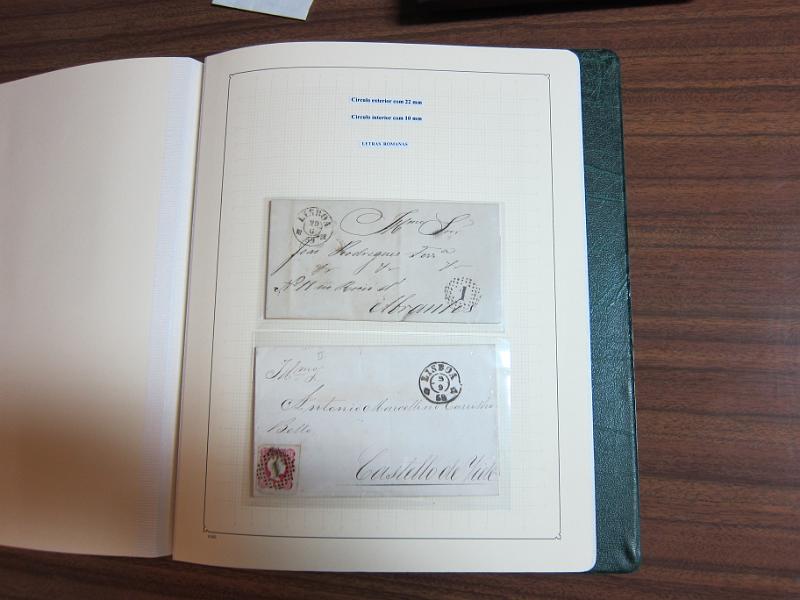 Círculo exterior com 22 mm
Círculo interior com 10 mm
LETRAS ROMANAS
LISBOA
69
Illmo Snr
João Rodrigues
Abrantes
1
Illmo
LISBOA
5
9
68
Antonio Marcellino Carrilho
Bello
Castello de Vide